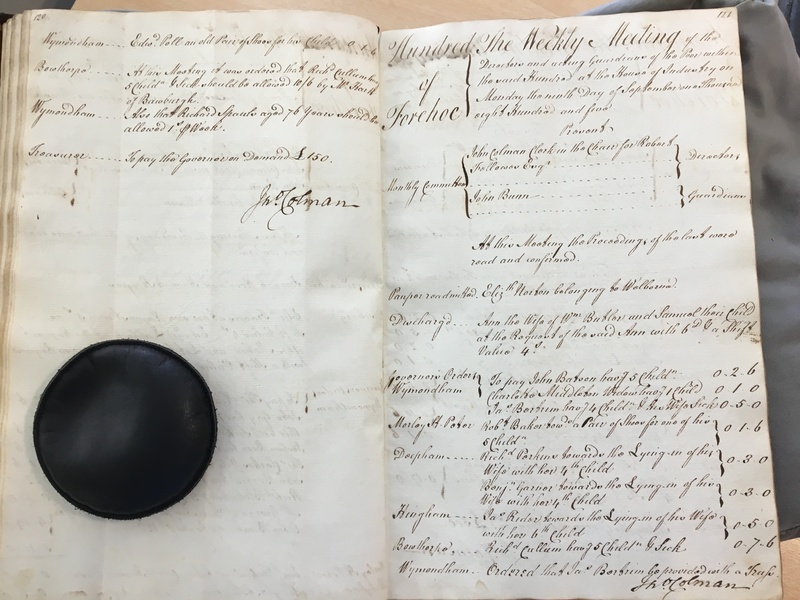 120
Wymondham Edwd. Poll an old Pair of Shoes for his Child 0-1-6
Bowthorpe At this Meeting it was ordered that Richd. Cullum havg
5 Childn. & Sick should be allowed 10/6 by Mr.
of Bawburgh.
Wymondham Also that Richard Sparle aged 76 Years should be
allowed 1s. Week.
Treasurer To pay the Governor on Demand £150.
Jno. Colman
121
Hundred of Forehoe
The Weekly Meeting of the
Directors and acting Guardians of the Poor within
the said Hundred at the House of Industry on
Monday the ninth Day of September one Thousand
eight Hundred and five
Present
Monthly Committee
John Colman Clerk in the Chair for Robert
Fellowes Esqr.
Directors
John Bunn
Guardians
At this Meeting the Proceedings of the last were
read and confirmed.
Pauper readmitted. Elizth. Norton belonging to Welborne.
Discharg'd Ann the Wife of Wm. Butler and Samuel their Child
at the Request of the said Ann with 6d. & a Shift
Value 4s.
Governors Orders
Wymondham To pay John Batson havg. 5 Childn. 0-2-6
Charlotte Middleton Widow havg. 1 Child 0 1 0
Jas. Bertrim havg. 4 Childn. & his Wife Sick 0-5-0
Morley St. Peter Robt. Baker towds. a Pair of Shoes for one of his
5 Childn. 0 1-6
Deopham Richd. Perkins towards the Lying-in of his
Wife with her 4th Child 0-3-0
Benjn. Garner towards the Lying-in of his
Wife with her 4th Child 0-3-0
Hingham Jas. Rider towards the Lying-in of his Wife
with her 6th Child 0-5-0
Bowthorpe Richd. Cullum havg. 5 Childn. & Sick 0-7-6
Wymondham Ordered that Jas. Bertrim be provided with a Truss.
Jno. Colman